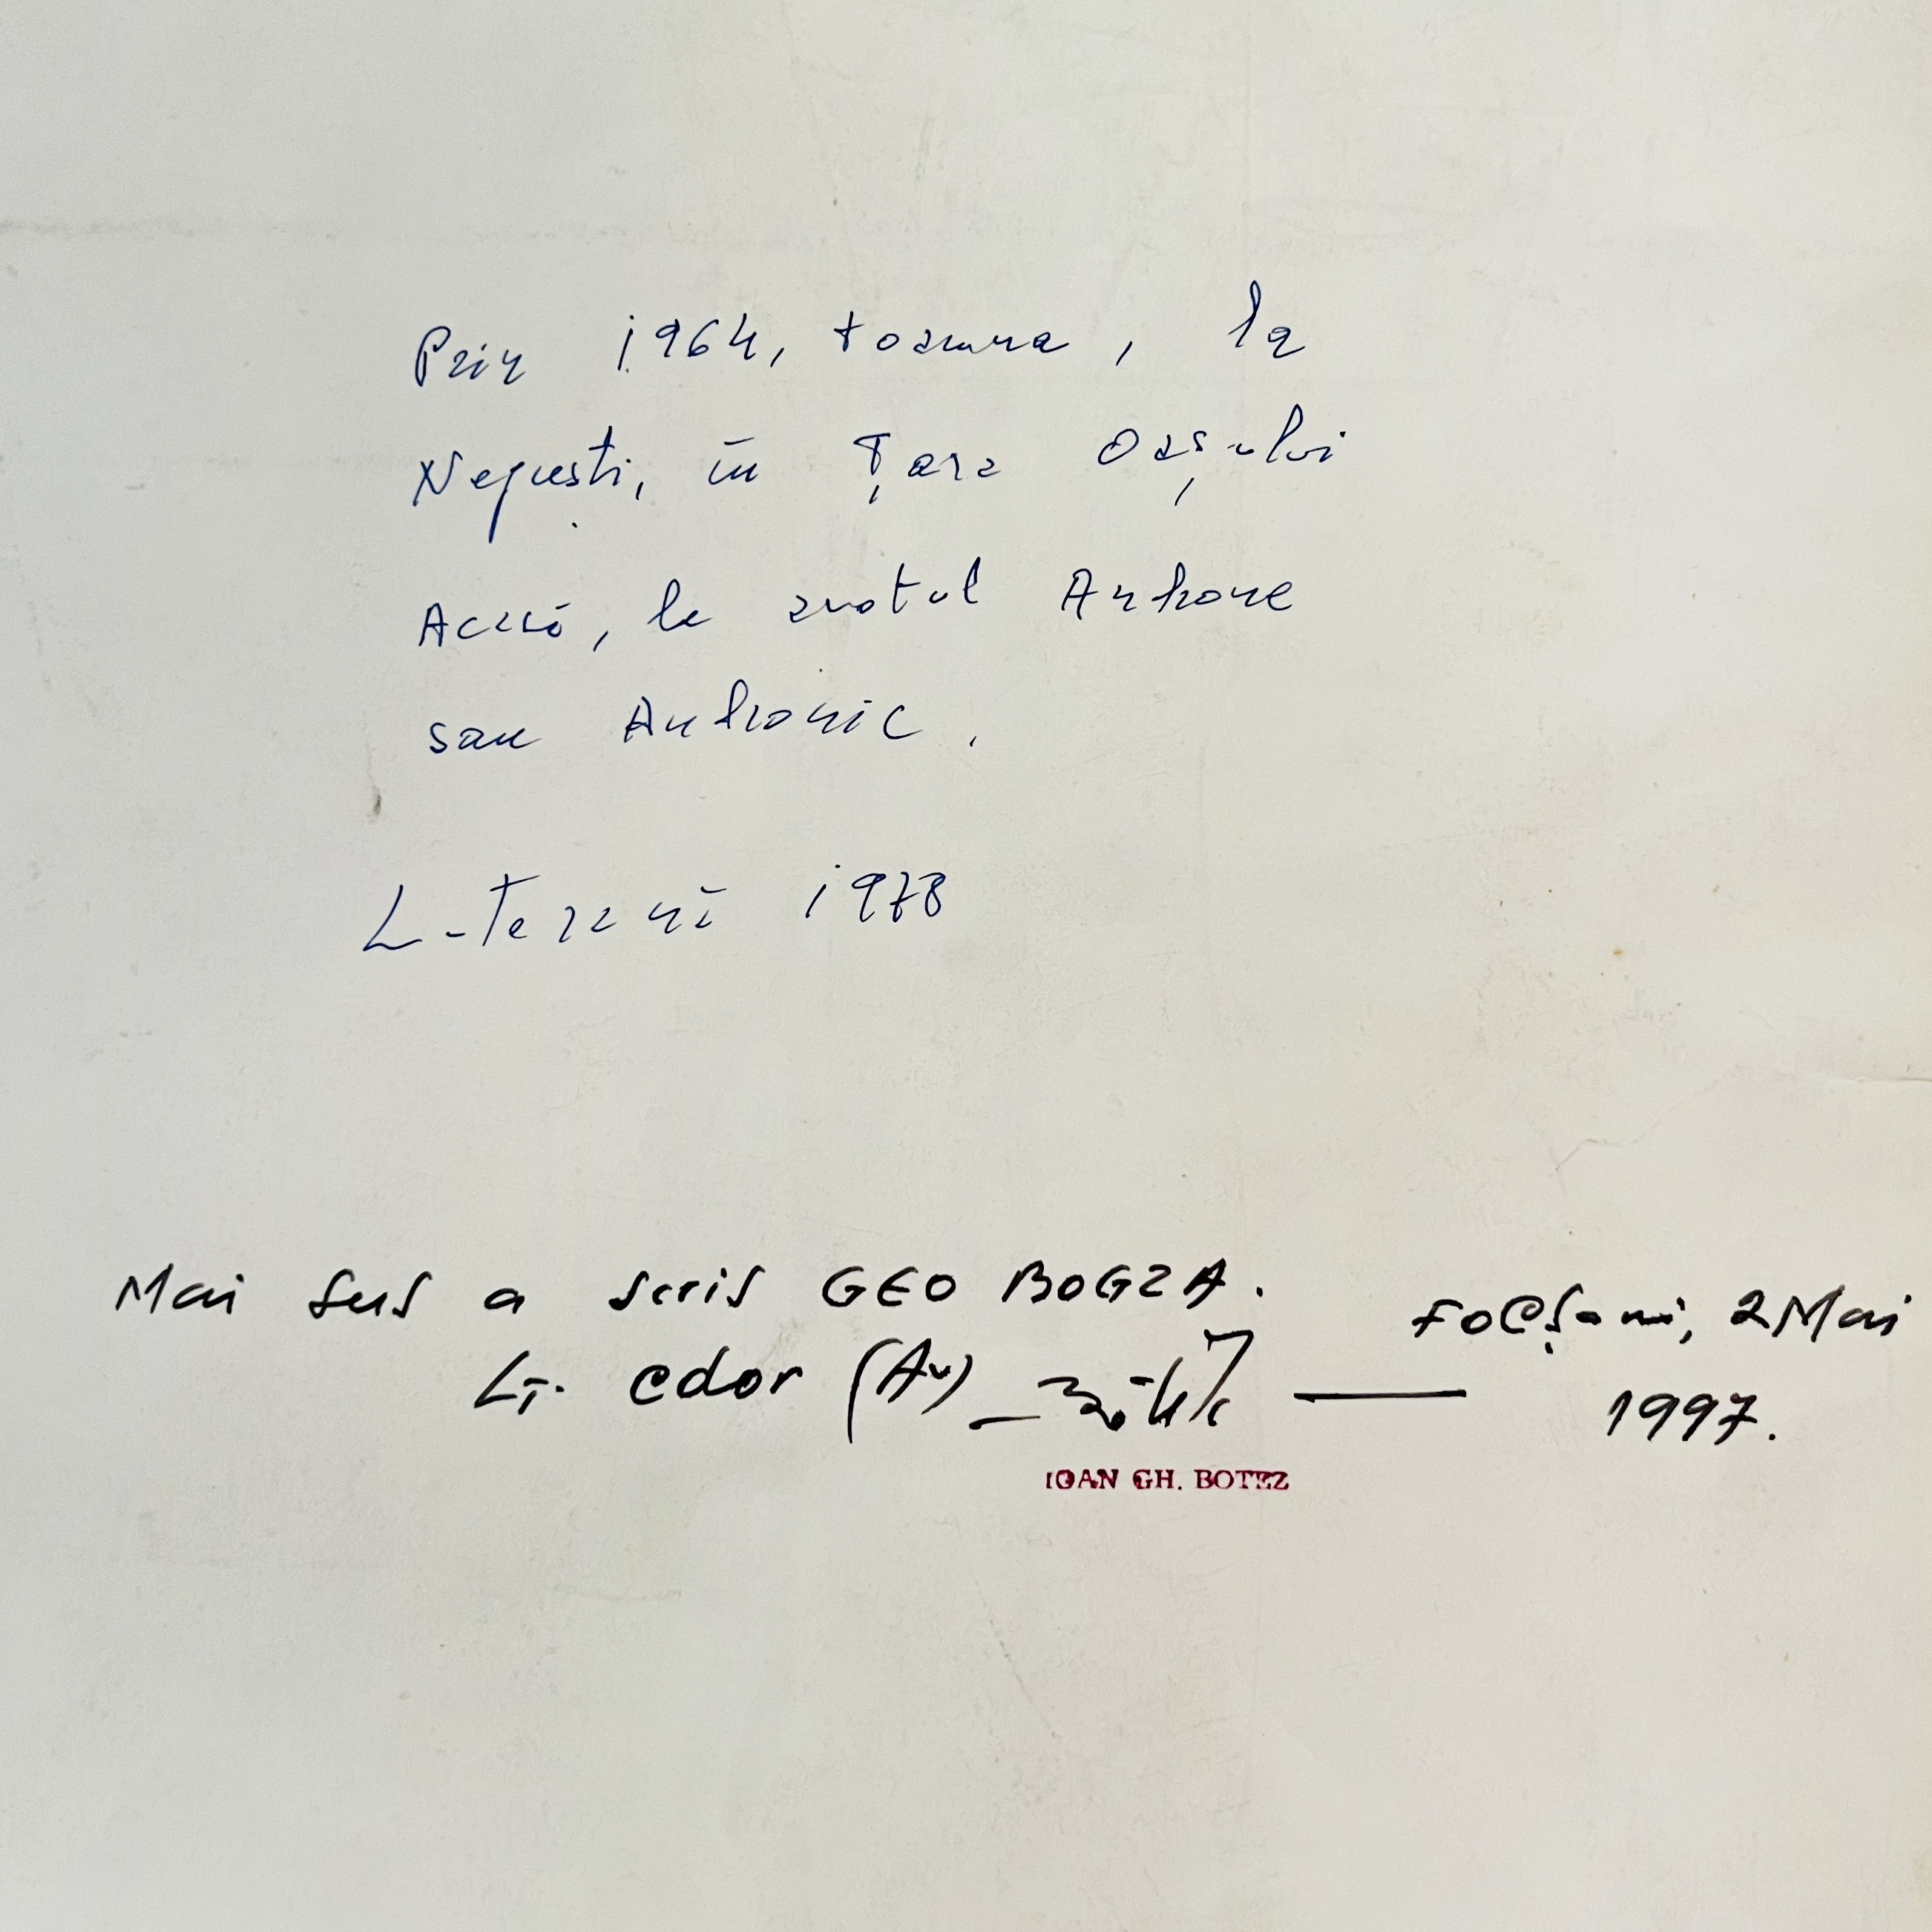 Prin 1964, toamna, la
Negrești, în Țara Oașului
Acasă, la
sau Andronic.
1978
Mai sus a scris GEO BOGZA.
Focșani, 2 Mai
Lt. cdor (Av)
1997.
IOAN GH. BOTEZ